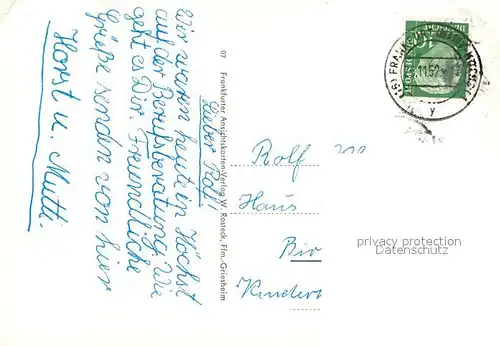 Lieber Rolf!
Wir waren heute in Höchst
auf der Berufsberatung. Wie
geht es Dir. Freundliche
Grüße senden von hier
Horst u. Mutti.
07 Frankfurter Ansichtskarten-Verlag W. Rosteck, Ffm.-Griesheim
FRANKFURT
y
Rolf
Haus
Bir
Kinder
privacy protection
Datenschutz